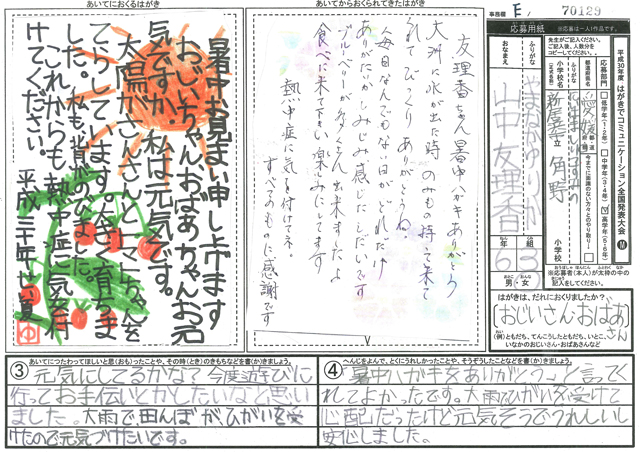 あいてにおくるはがき
暑中お見まい申し上げます
おじいちゃん、おばあちゃんお元
気ですか。私は元気です。
太陽がさんさんとトマトちゃんを
てらしています。大きく育ちま
した。私も背がのびました。
これからも熱中症に気を付
けてください。
平成三十年七夏
あいてからおくられてきたはがき
友理香ちゃん暑中ハガキありがとう
大洲、水が出た時のみもの持って来て
くれてびっくりありがとうね。
毎日なんでもない日がどれだけ
ありがたいか、みじみ感じたです
ブルーベリーがたくさん出来ましたよ
食べに来て下さい。楽しみにしてます
熱中症に気を付けてネ。
すべてのものに感謝です
事務欄 E 70129
応募用紙
※応募は一人1作品です。
平成30年度 はがきでコミュニケーション全国発表大会
先生がご記入ください。
ご記入後、人数分を
コピーしてください。
応募部門
低学年(1・2年)
中学年(3・4年)
高学年(5・6年)
都道府県名
愛媛
小学校名
新居浜市立 角野 小学校
ふりがな
おなまえ
やまなかゆりか
山中友理香
6年
3組
男・女
※応募者(本人)が太枠の中の
記入をしてください。
はがきは、だれにおくりましたか?
おじいさん・おばあさん
(例)ともだち、てんこうしたともだち、いとこ、
いなかのおじいさん・おばあさんなど
あいてにつたわってほしいと思(おも)ったことや、その時(とき)のきもちなどを書(か)きましょう。
③元気にしてるかな?今度遊びに
行ってお手伝いとかしたいなと思い
ました。大雨で、田んぼが、ひがいを受
けたので元気づけたいです。
へんじをよんで、とくにうれしかったことや、そうぞうしたことなどを書(か)きましょう。
④暑中ハガキをありがとうと言ってく
れてよかったです。大雨でひがいを受けて
心配だったけど元気そうでうれしいし
安心しました。